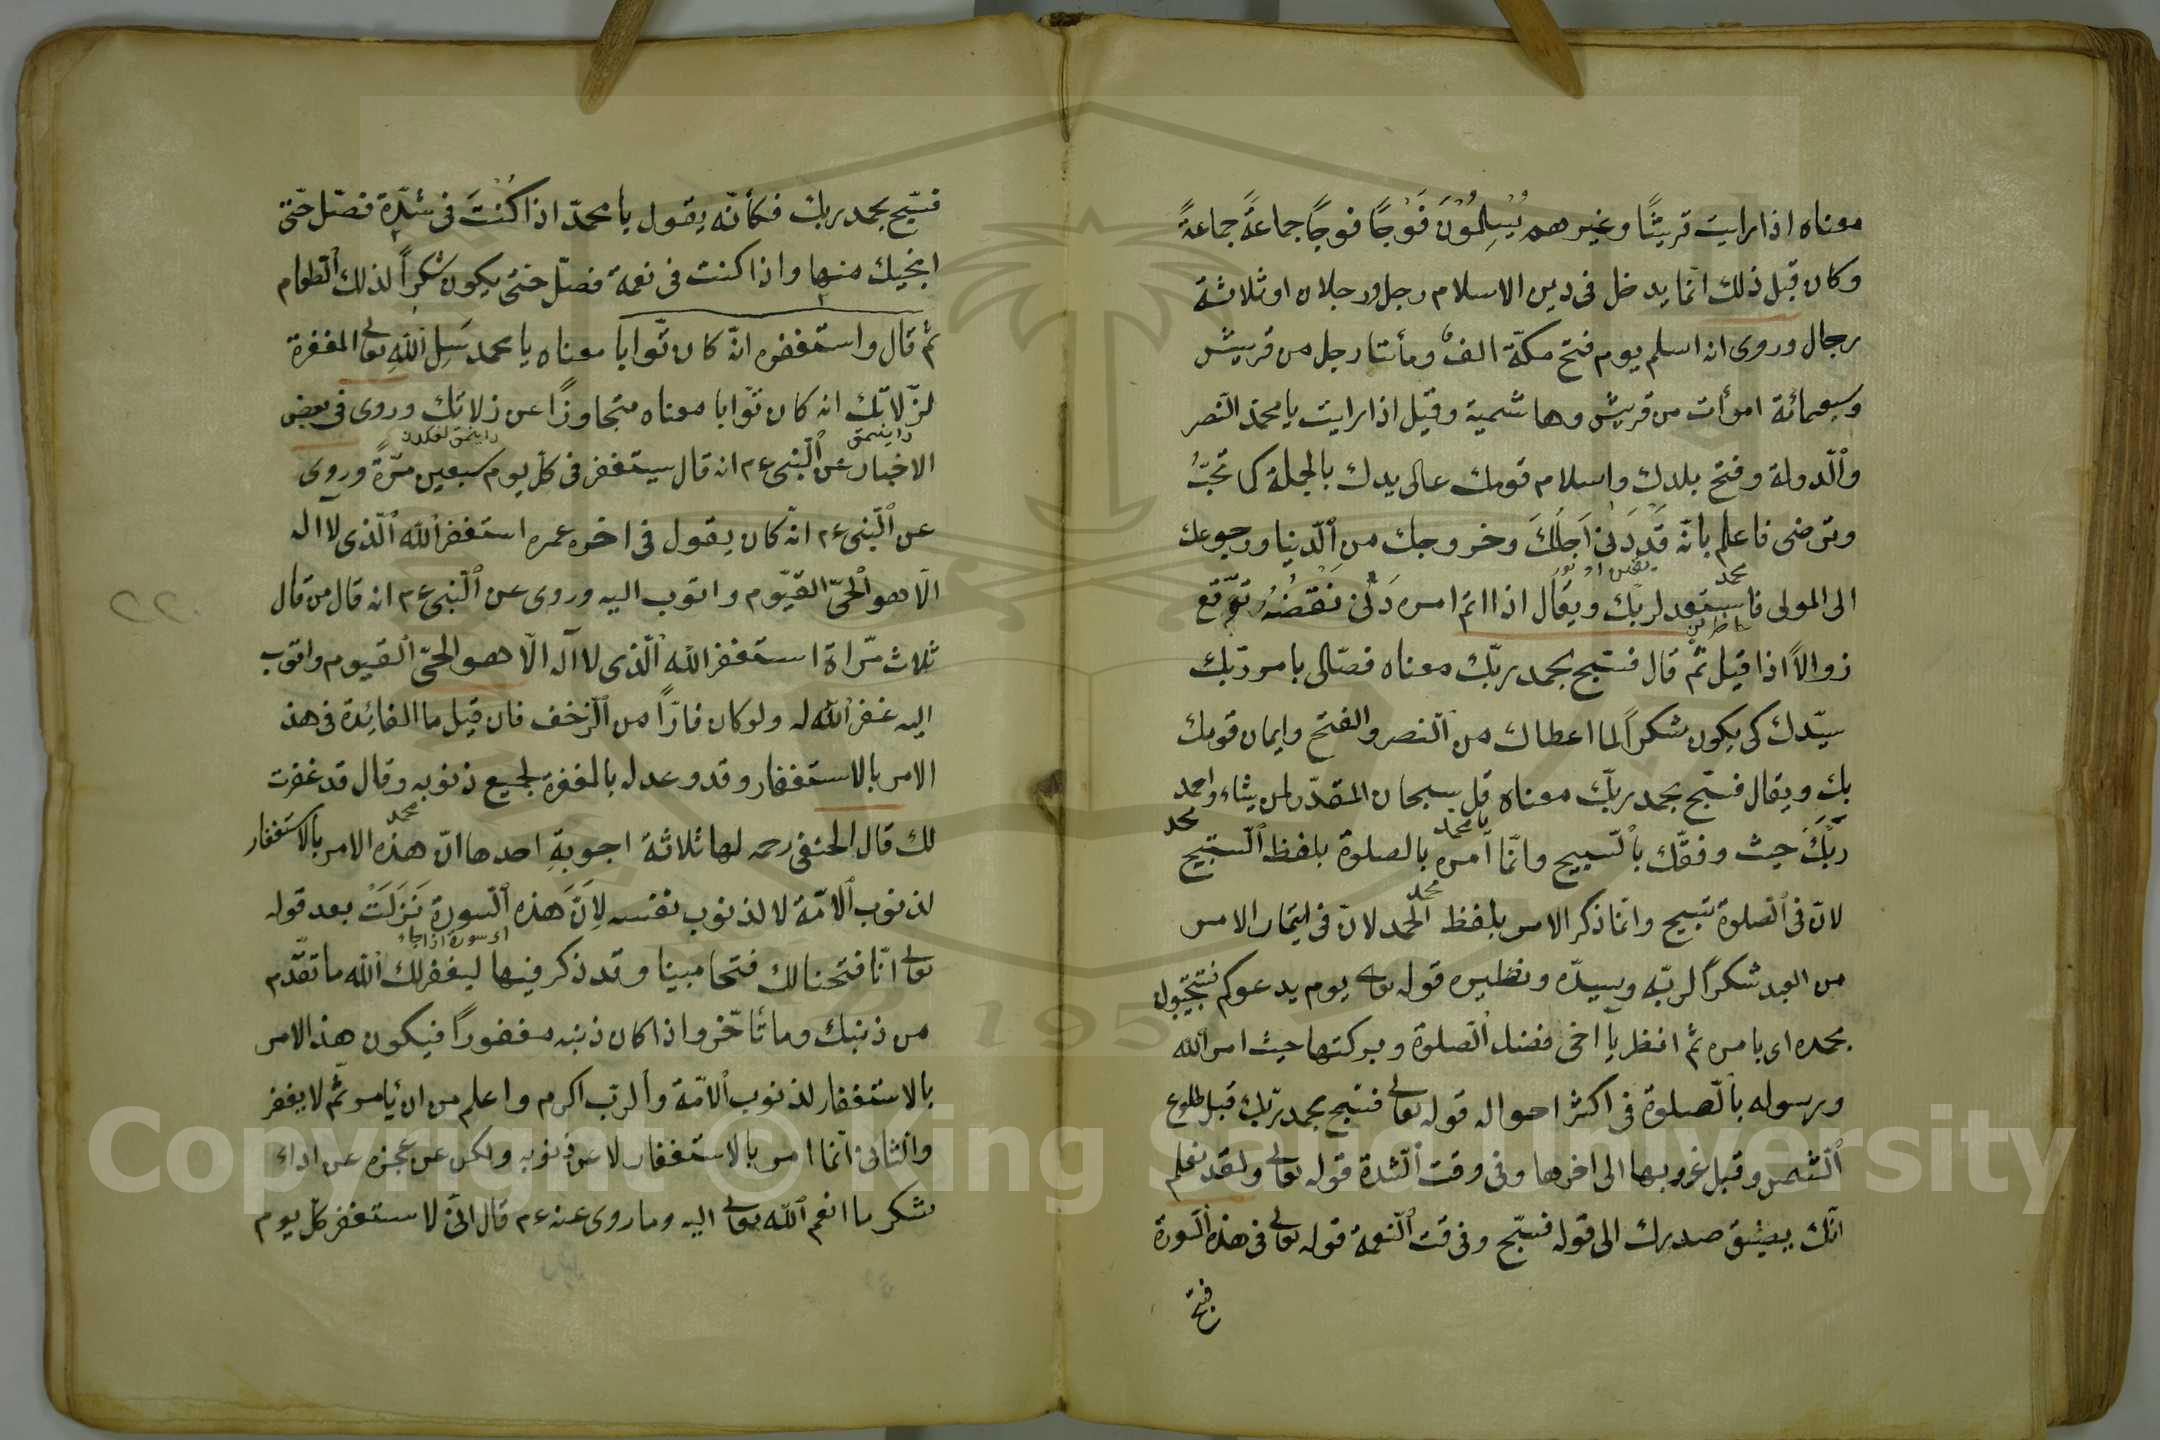 معناه اذا رايت قريشًا وغيرهم يُسْلِمُوْنَ فَوْجًا فوجًا جماعَةً جماعةً
وكان قبل ذلك انّما يدخل فى دين الاسلام رجل ورجلان او ثلاثة
رجال وروى انه اسلم يوم فتح مكّة الف ومأتا رجل من قريش
وسبعمائة امرأت من قريش وهاشمية وقيل اذا رايت يا محمّد النّصر
والدّولة وفتح بلدك واسلام قومك عالى يدك بالجملة كما تحبّ
وترضى فاعلم بانّه قَدْ دَنٰى اَجَلُكَ وخروجك من الدّنيا ورجوعك
الى المولى فاستعد لربّك ويُقال اذا اتمّ امره دَنٰى نَقْصُهُ توقّع
زوالاً اذا قيل تمّ قال فسبّح بحمد ربّك معناه فصلّى بامر ربّك
سيّدك كى يكون شكراً لما اعطاك من النّصر والفتح وايمان قومك
بك ويقال فسبّح بحمد ربّك معناه قل سبحان المقدّر لمن يشاء واحمد
ربّك حيث وفقّك بالتّسبيح وانّما امره بالصلوة بلفظ التّسبيح
لانّ فى الصّلوة تسبيح وانّما ذكر الامر بلفظ الحمد لانّ فى ايتمار الامر
من العبد شكراً لربّه وسيدّه ونظيره قوله تعالى يوم يدعوكم فتستجيبون
بحمده اى بامره ثمّ انظر يا اخى فضل الصّلوة وبركتها حيث امر الله
ورسوله بالصّلوة فى اكثر احواله قوله تعالى فسبّح بحمد ربّك قبل طلوع
الشّمس وقبل غروبها الى اخرها وفى وقت الشّدة قوله تعالى ولقد نعلم
انّك يضيق صدرك الى قوله فسبّح وفى قت النّعمة قوله تعالى فى هذه السّورة
فسبّح
فسبّح بحمد ربك فكأنّه يقول يا محمدّ اذا كُنْتَ فى شدّة فصلّ حتّى
انجيك منها واذا كنت فى نعمة فصلّ حتى يكون شكراً لذلك الطعام
ثم قال واستغفره انّه كان توّابا معناه يا محمد سَلِ اللهِ تعالى المغفرة
لزلاتك انه كان توّابا معناه متجاوزًا عن زلاتك وروى فى بعض
الاخبار عن النّبى ع م انه قال سيتغفر فى كلّ يوم سبعين مرّةً وروى
عن النّبى ع م انّه كان يقول فى اخره عمره استغفر الله الّذى لا اله
الّا هو الحىّ القيّوم واتوب اليه وروى عن النّبى ع م انه قال من قال
ثلاث مرّاة استغفر الله الّذى لا اله الّا هو الحىّ القيوم واتوب
اليه غفر الله له ولو كان فارّاً من الزخف فان قيل ما الفائدة فى هذ
الامر بالاستغفار وقد وعد له بالمغفرة لجميع ذنوبه وقال قد غفرت
لك قال الحنفى رحمه لها ثلاثة اجوبةٍ احدها انّ هذه الامر بالاستغفار
لذنوب الامّة لا لذنوب نفسه لِاَنّ هذه السّورة نَزَلَتْ بعد قوله
اى سورة اذا جاء
تعالى انّا فتحنا لك فتحا مبينا وقد ذكر فيها ليغفر لك الله ما تقدّم
من ذنبك وما تأخّر واذا كان ذنبه مغفوراً فيكون هذ الامر
بالاستغفار لذنوب الامّة والربّ اكرم واعلم من ان يامر ثمّ لا يغفر
والثانى انّما امر بالاستغفار لا عن ذنوبه ولكن عن عجزه عن اداء
شكر ما انعم الله تعالى اليه وما روى عنه ع م قال انّى لاستغفر كلّ يوم
٢٢
Copyright © King Saud University
1957